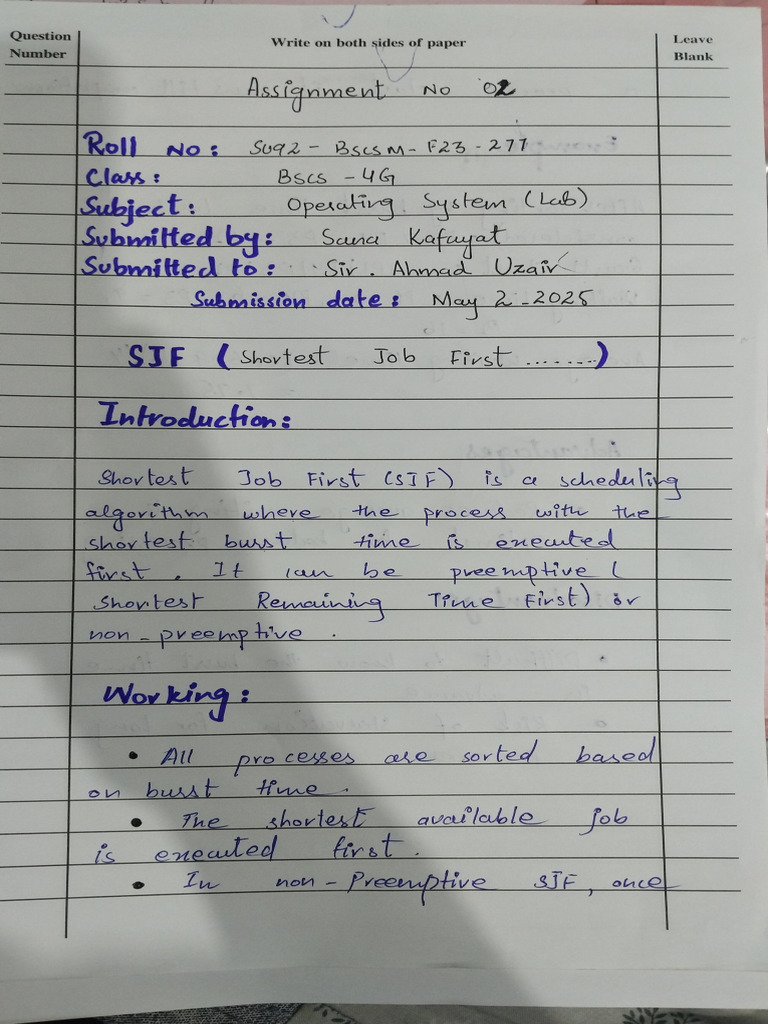 Question
Number
Write on both sides of paper
Leave
Blank
Assignment No 02
Roll No: SU92 - BSCSM - F23 - 277
Class: BSCS - 4G
Subject: Operating System (Lab)
Submitted by: Sana Kafayat
Submitted to: Sir . Ahmad Uzair
Submission date: May 2 - 2025
SJF ( Shortest Job First ........)
Introduction:
Shortest Job First (SJF) is a scheduling
algorithm where the process with the
shortest burst time is executed
first . It can be preemptive (
Shortest Remaining Time First) or
non - preemptive .
Working:
• All processes are sorted based
on burst time .
• The shortest available job
is executed first .
• In non - Preemptive SJF , once